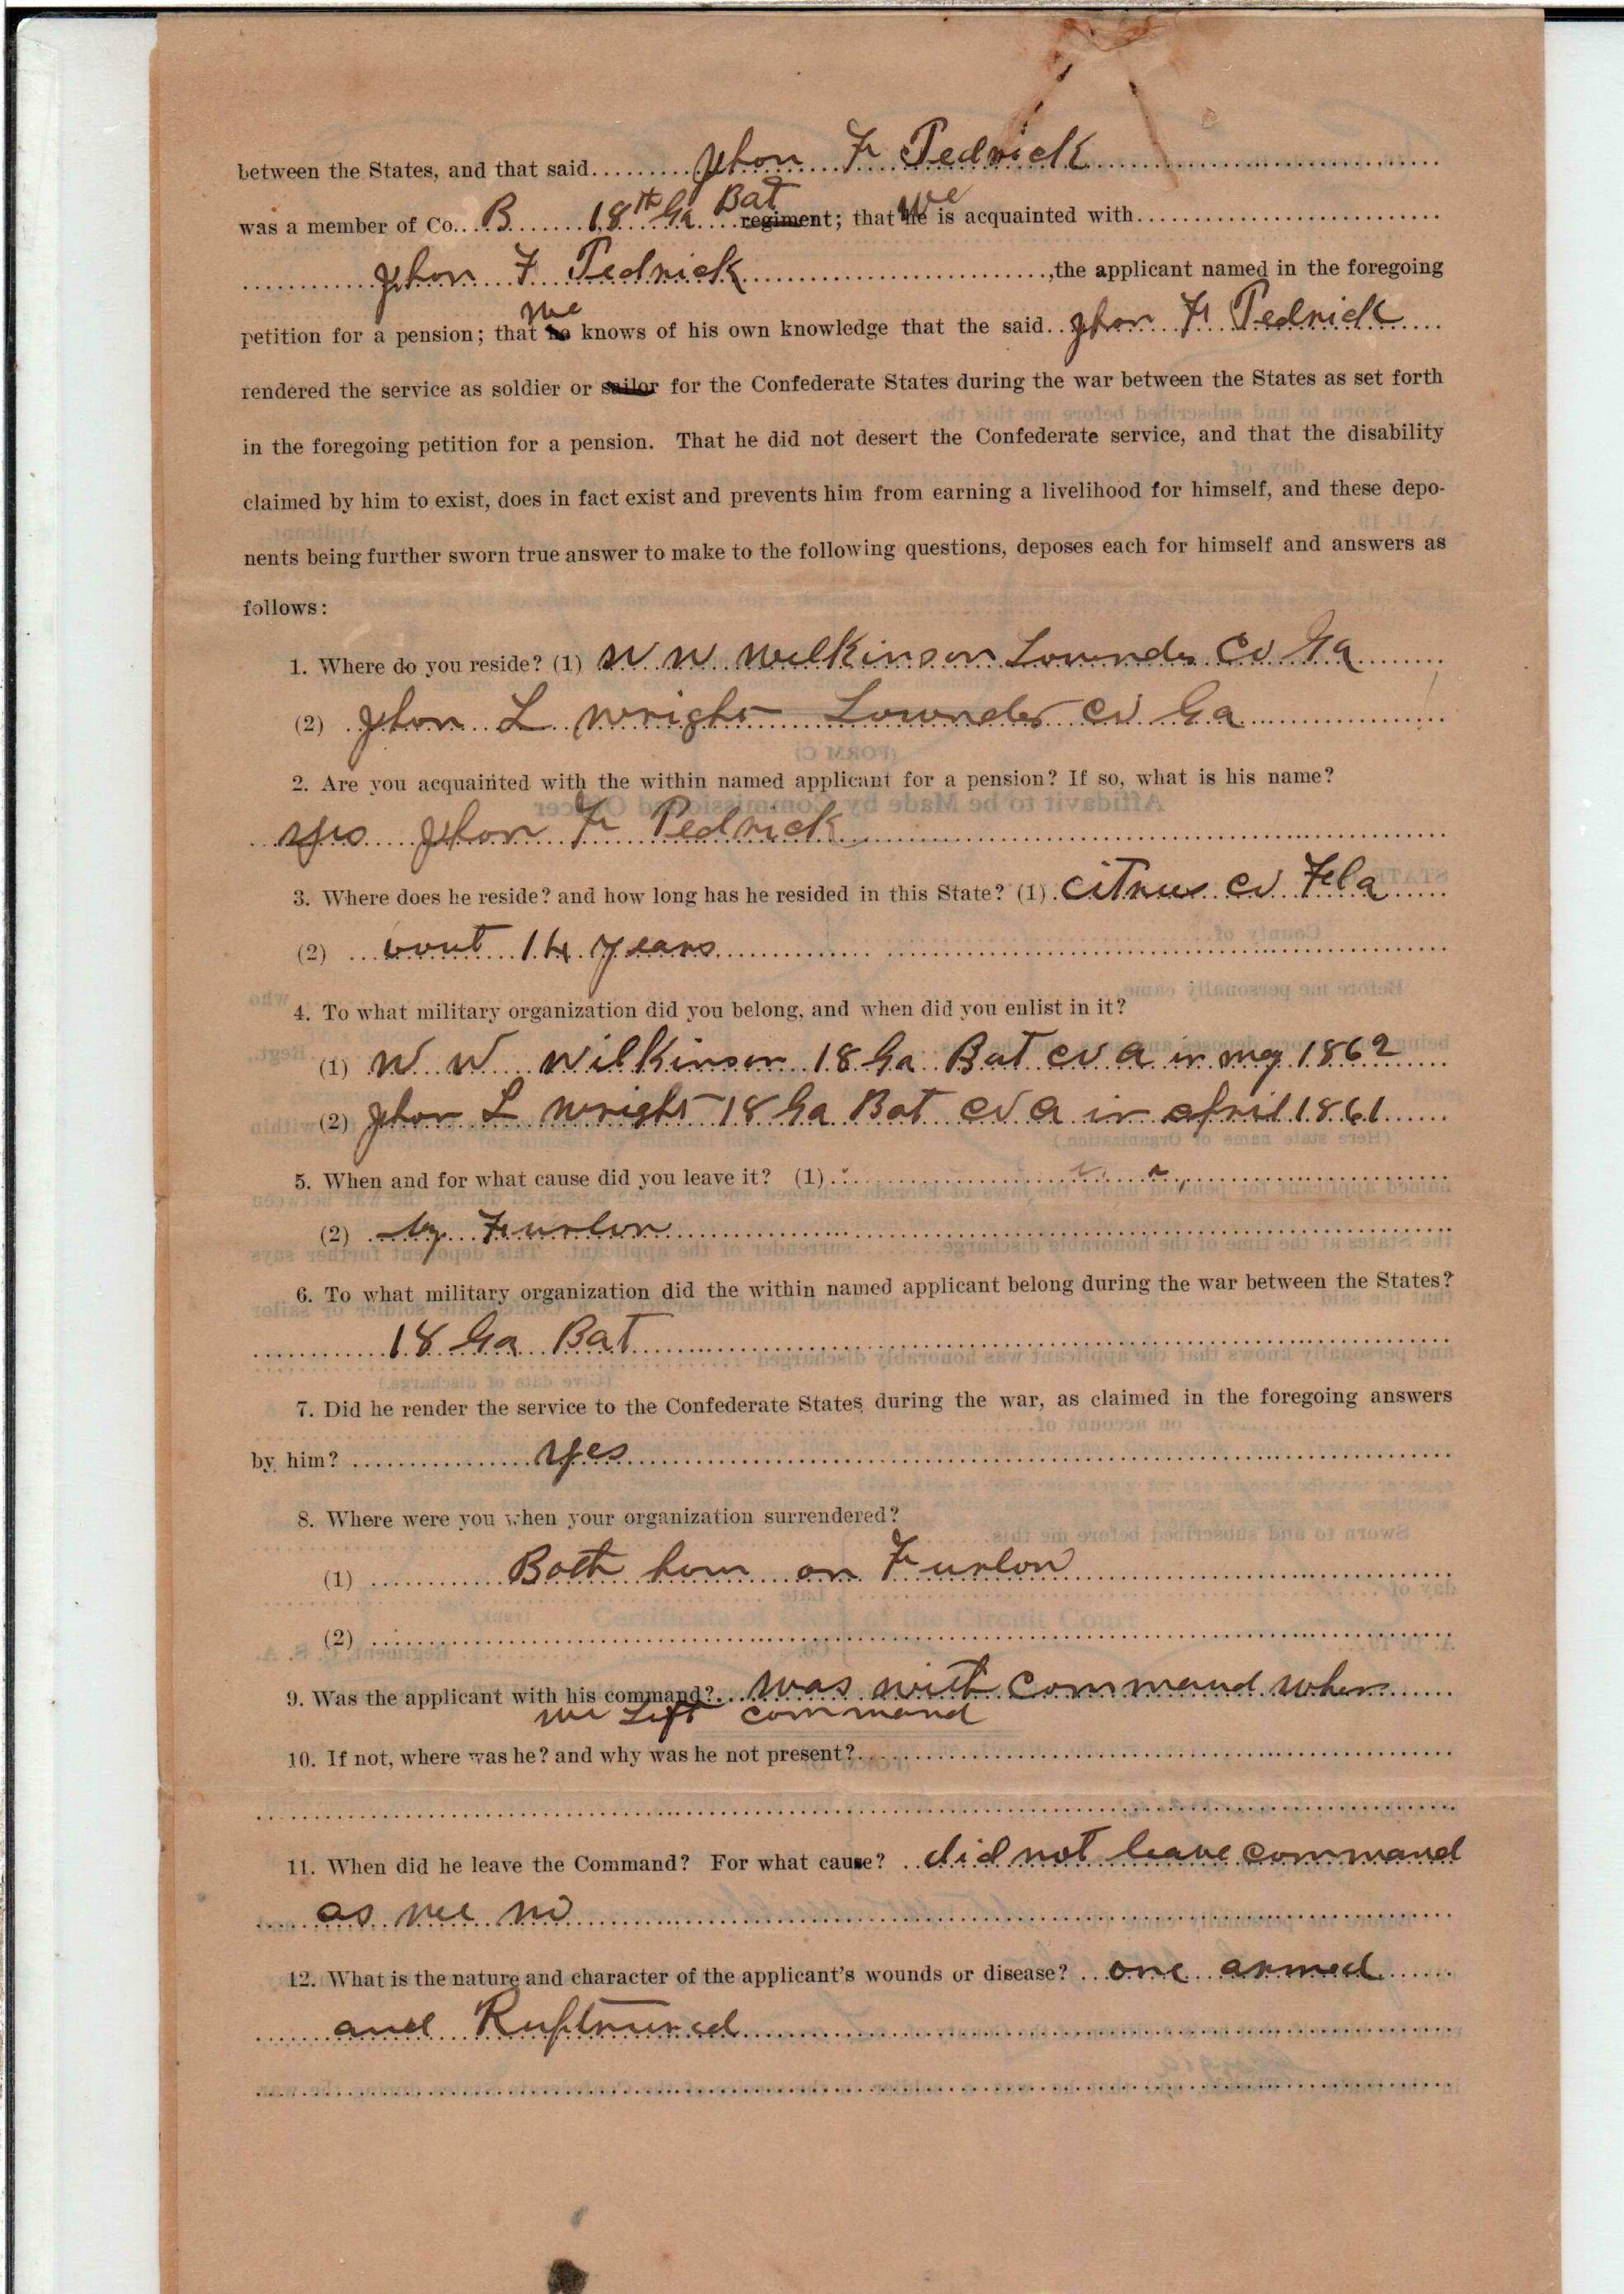 between the States, and that said Jhon F Pedrick
was a member of Co. B 18th Ga Bat regiment; that we he is acquainted with
Jhon F Pedrick, the applicant named in the foregoing
petition for a pension; that we he knows of his own knowledge that the said Jhon F Pedrick
rendered the service as soldier or sailor for the Confederate States during the war between the States as set forth
in the foregoing petition for a pension. That he did not desert the Confederate service, and that the disability
claimed by him to exist, does in fact exist and prevents him from earning a livelihood for himself, and these depo-
nents being further sworn true answer to make to the following questions, deposes each for himself and answers as
follows:
1. Where do you reside? (1) W W Wilkinson Lowndes Co Ga
(2) Jhon L Wright Lowndes Co Ga
2. Are you acquainted with the within named applicant for a pension? If so, what is his name?
yes Jhon F Pedrick
3. Where does he reside? and how long has he resided in this State? (1) Citrus Co Fla
(2) bout 14 years
4. To what military organization did you belong, and when did you enlist in it?
(1) W W Wilkinson 18 Ga Bat Co A in may 1862
(2) Jhon L Wright 18 Ga Bat Co A in april 1861
5. When and for what cause did you leave it? (1)
(2) by Furlon
6. To what military organization did the within named applicant belong during the war between the States?
18 Ga Bat
7. Did he render the service to the Confederate States during the war, as claimed in the foregoing answers
by him? yes
8. Where were you when your organization surrendered?
(1) Both hom on Furlon
(2)
9. Was the applicant with his command? was with command when
we Left command
10. If not, where was he? and why was he not present?
11. When did he leave the Command? For what cause? did not leave command
as we no
12. What is the nature and character of the applicant's wounds or disease? one armed
and Ruptured